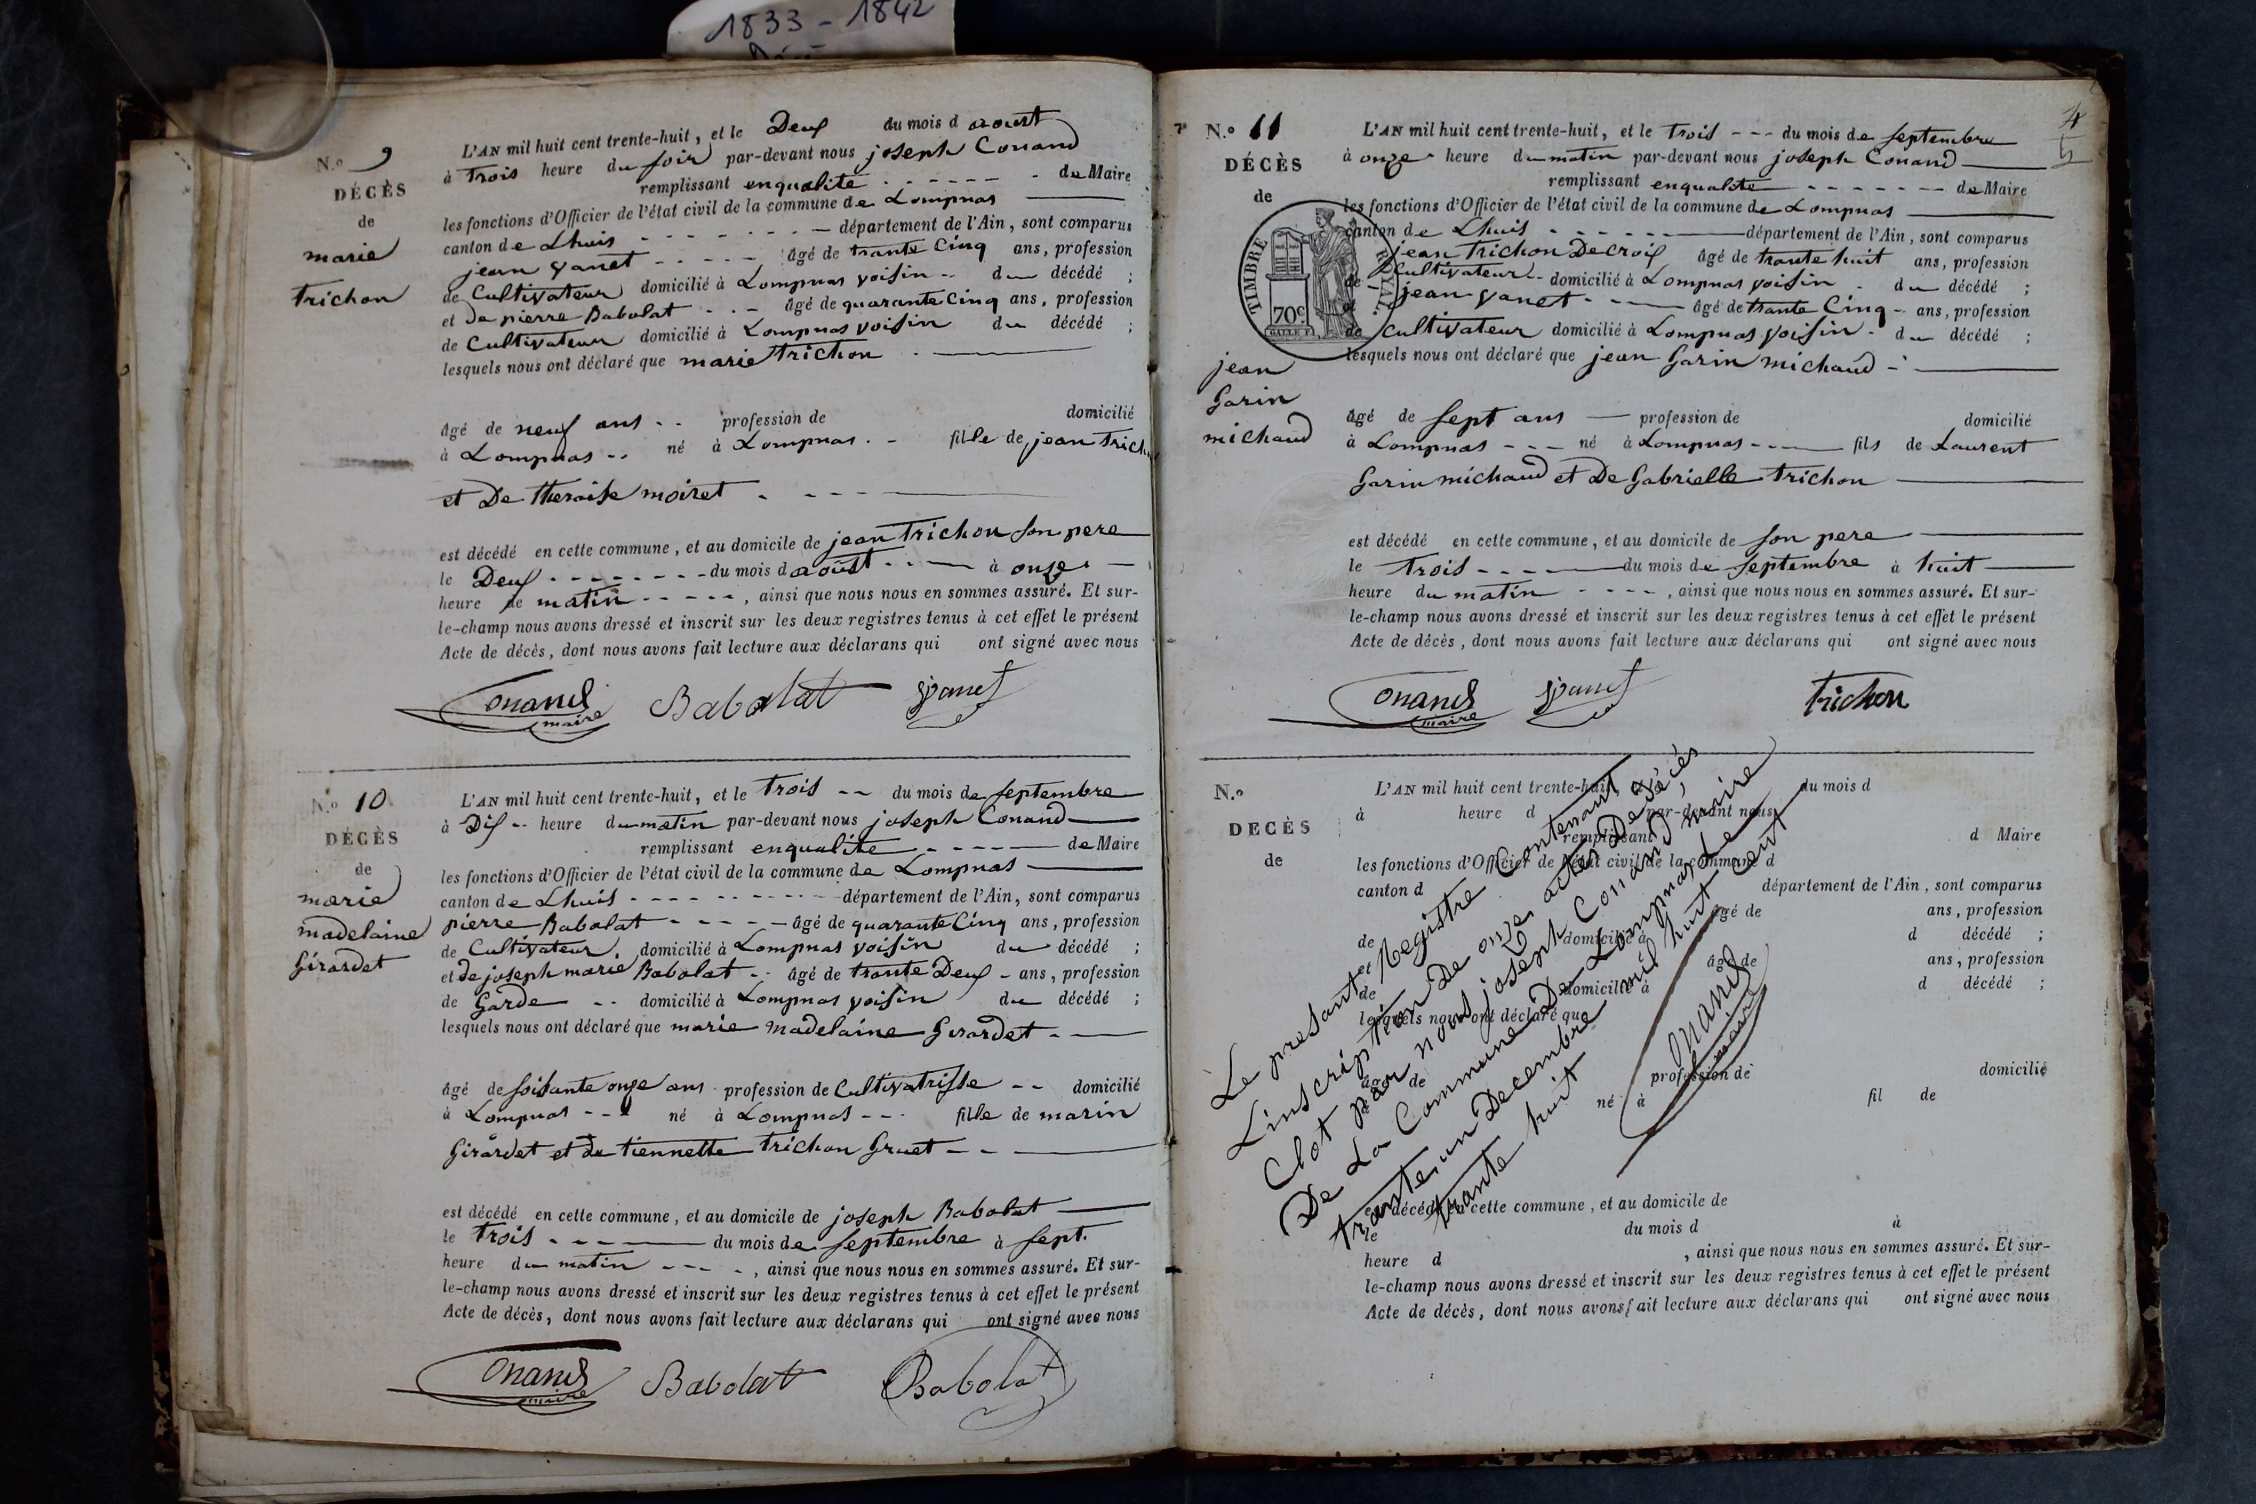 1833 - 1842
N.o 9
DÉCÈS
de
marie
trichon
L'AN mil huit cent trente-huit, et le Deux du mois d aoust
à trois heure du soir par-devant nous joseph Conand
remplissant enqualité - - - - - - de Maire
les fonctions d'Officier de l'état civil de la commune de Lompnas
canton de Lhuis - - - - - - département de l'Ain, sont comparus
jean yanet - - - - - âgé de trante Cinq ans, profession
de Cultivateur domicilié à Lompnas voisin - - du décédé ;
et de pierre Babolat - - - âgé de quarante Cinq ans, profession
de Cultivateur domicilié à Lompnas voisin du décédé ;
lesquels nous ont déclaré que marie trichon
âgé de neuf ans - - profession de domicilié
à Lompnas - - né à Lompnas - - fille de jean trich
et De theraise moiret - - - -
est décédé en cette commune, et au domicile de jean trichon son pere
le Deux - - - - - - - du mois d aoust - - - à onze
heure de matin - - - - -, ainsi que nous nous en sommes assuré. Et sur-
le-champ nous avons dressé et inscrit sur les deux registres tenus à cet effet le présent
Acte de décès, dont nous avons fait lecture aux déclarans qui ont signé avec nous
Conand Babolat yanet
maire
N.o 10
DÉCÈS
de
marie
madelaine
Girardet
L'AN mil huit cent trente-huit, et le trois - - du mois de septembre
à Dix - - heure du matin par-devant nous joseph Conand
remplissant enqualité - - - - - de Maire
les fonctions d'Officier de l'état civil de la commune de Lompnas
canton de Lhuis - - - - - - - - - département de l'Ain, sont comparus
pierre Babolat - - - - - âgé de quarante Cinq ans, profession
de Cultivateur domicilié à Lompnas voisin du décédé ;
et de joseph marie Babolat - - âgé de trante Deux - ans, profession
de Garde - - domicilié à Lompnas voisin du décédé ;
lesquels nous ont déclaré que marie madelaine Girardet -
âgé de soisante onze ans profession de Cultivatrisse - - domicilié
à Lompnas - - né à Lompnas - - fille de marin
Girardet et de tiennette trichon Gruet - -
est décédé en cette commune, et au domicile de joseph Babolat
le trois - - - du mois de septembre à sept.
heure du matin - - - -, ainsi que nous nous en sommes assuré. Et sur-
le-champ nous avons dressé et inscrit sur les deux registres tenus à cet effet le présent
Acte de décès, dont nous avons fait lecture aux déclarans qui ont signé avec nous
Conand Babolat Babolat
maire
N.o 11
DÉCÈS
de
jean
Garin
michaud
TIMBRE ROYAL.
70c
L'AN mil huit cent trente-huit, et le trois - - - du mois de septembre
à onze heure du matin par-devant nous joseph Conand
remplissant enqualité - - - - - - - de Maire
les fonctions d'Officier de l'état civil de la commune de Lompnas
canton de Lhuis - - - - - département de l'Ain, sont comparus
jean trichon Decroix âgé de trante huit ans, profession
de Cultivateur - - domicilié à Lompnas voisin - du décédé ;
et jean yanet - - - âgé de trante Cinq - - ans, profession
de cultivateur domicilié à Lompnas voisin - du décédé ;
lesquels nous ont déclaré que jean Garin michaud -
âgé de sept ans profession de domicilié
à Lompnas - - - né à Lompnas - - - fils de Laurent
Garin michaud et De Gabrielle trichon
est décédé en cette commune, et au domicile de son pere
le trois - - - - du mois de septembre à huit
heure du matin - - - -, ainsi que nous nous en sommes assuré. Et sur-
le-champ nous avons dressé et inscrit sur les deux registres tenus à cet effet le présent
Acte de décès, dont nous avons fait lecture aux déclarans qui ont signé avec nous
Conand yanet trichon
maire
N.o
DECÈS
de
L'AN mil huit cent trente-huit, et le du mois d
à heure d par-devant nous
remplissant d Maire
les fonctions d'Officier de l'état civil de la commune d
canton d département de l'Ain, sont comparus
âgé de ans, profession
de domicilié à d décédé ;
et âgé de ans, profession
de domicilié à d décédé ;
lesquels nous ont déclaré que
âgé de profession de domicilié
à né à fil de
est décédé en cette commune, et au domicile de
le du mois d à
heure d , ainsi que nous nous en sommes assuré. Et sur-
le-champ nous avons dressé et inscrit sur les deux registres tenus à cet effet le présent
Acte de décès, dont nous avons fait lecture aux déclarans qui ont signé avec nous
Le presant Registre Contenant
Linscription De onze actes De Décés,
Clot par nous joseph Conand maire
De La Commune De Lompnas Le
trante un Decembre mil huit cent
trante huit
Conand
maire